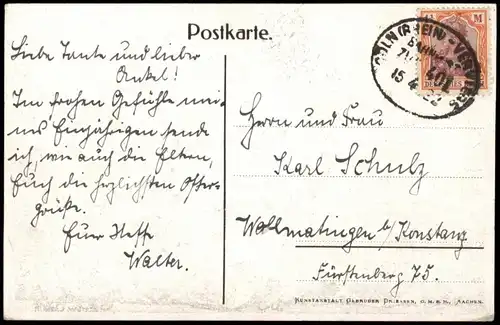 Postkarte.
Liebe Tante und lieber
Onkel!
Im frohen Gefühle mei-
nes Einjährigen sende
ich, wie auch die Eltern,
Euch die herzlichsten Oster-
grüße.
Euer Neffe
Walter.
M
CÖLN (RHEIN) - VERVIERS
BAHNPOST
ZUG 401
15 4 22
Herrn und Frau
Karl Schulz
Wollmatingen b/ Konstanz
Fürstenberg 75.
KUNSTANSTALT GEBRÜDER DRIESSEN, G.M.B.H., AACHEN.